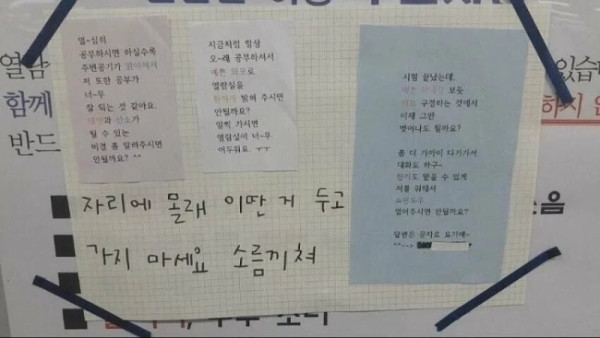 열~심히
공부하시면 하실수록
주변공기가 맑아져서
저 또한 공부가
너~무
잘 되는 것 같아요.
산소가
될 수 있는
비결 좀 알려주시면
안될까요? ^^
지금처럼 항상
오~래 공부하셔서
예쁜 외모로
열람실을
환하게 밝혀 주시면
안될까요?
일찍 가시면
열람실이 너~무
어두워요 ㅜㅜ
시험 끝났는데,
예쁜 보듯
구경하는 것에서
이제 그만
벗어나도 될까요?
좀 더 가까이 다가가서
대화도 하구~
향기도 맡을 수 있게
저를 위해서
열어주시면 안될까요?
답변은 문자로 요기에~
^^-->
자리에 몰래 이딴 거 두고
가지 마세요 소름끼쳐
열람
함께
반드
있습니
하지 않
음
소리